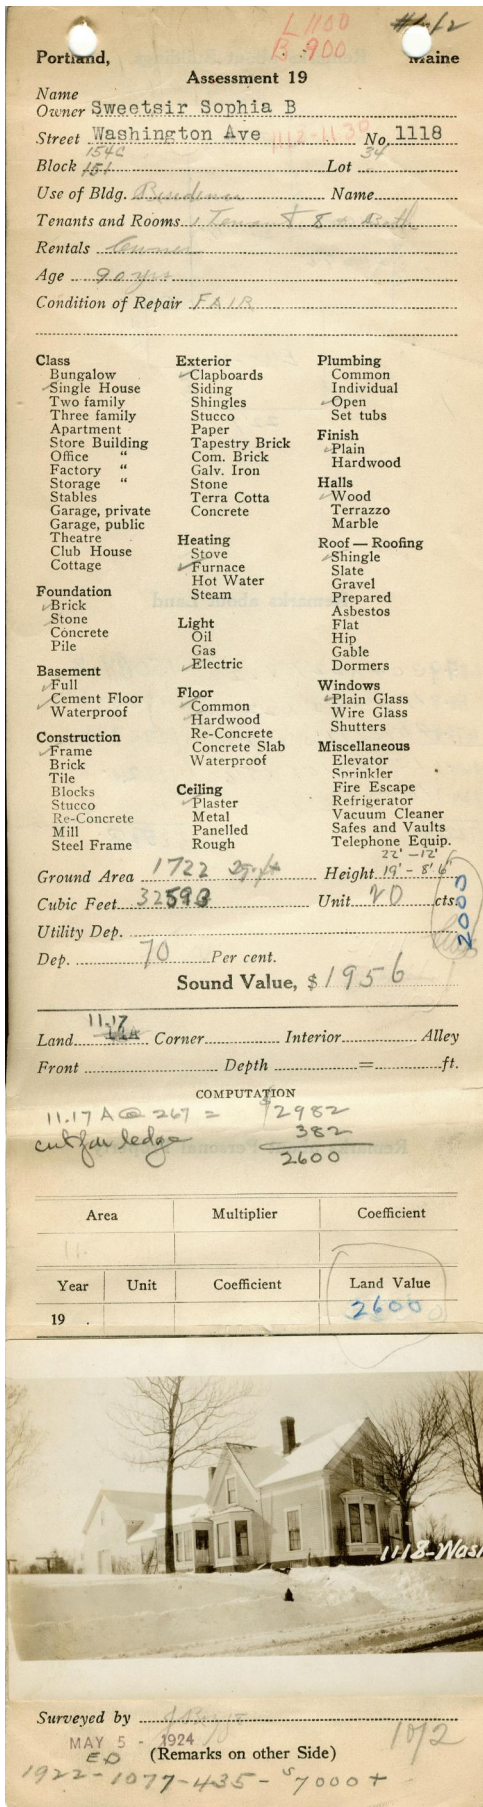 L 1100
B 900
Portland, Maine
Assessment 19
Name
Owner Sweetsir Sophia B
Street Washington Ave 1112-1130 No. 1118
154C 34
Block 151 Lot
Use of Bldg. Residence Name
Tenants and Rooms 1 Tenant 8 + Bath
Rentals Owner
Age 90 yrs
Condition of Repair FAIR
Class
Bungalow
✓Single House
Two family
Three family
Apartment
Store Building
Office "
Factory "
Storage "
Stables
Garage, private
Garage, public
Theatre
Club House
Cottage
Foundation
✓Brick
✓Stone
Concrete
Pile
Basement
✓Full
✓Cement Floor
Waterproof
Construction
✓Frame
Brick
Tile
Blocks
Stucco
Re-Concrete
Mill
Steel Frame
Exterior
✓Clapboards
Siding
Shingles
Stucco
Paper
Tapestry Brick
Com. Brick
Galv. Iron
Stone
Terra Cotta
Concrete
Heating
Stove
✓Furnace
Hot Water
Steam
Light
Oil
Gas
✓Electric
Floor
✓Common
✓Hardwood
Re-Concrete
Concrete Slab
Waterproof
Ceiling
✓Plaster
Metal
Panelled
Rough
Plumbing
Common
Individual
✓Open
Set tubs
Finish
✓Plain
Hardwood
Halls
✓Wood
Terrazzo
Marble
Roof — Roofing
✓Shingle
Slate
Gravel
Prepared
Asbestos
Flat
Hip
Gable
Dormers
Windows
✓Plain Glass
Wire Glass
Shutters
Miscellaneous
Elevator
Sprinkler
Fire Escape
Refrigerator
Vacuum Cleaner
Safes and Vaults
Telephone Equip.
22' - 12'
Ground Area 1722 sq ft Height 19' - 8' 6"
Cubic Feet 32593 Unit 20 cts.
2003
Utility Dep.
Dep. 70 Per cent.
Sound Value, $ 1956
11.17
Land Corner Interior Alley
Front Depth = ft.
COMPUTATION
11.17 A @ 267 = $2982
cut for ledge 382
2600
Area Multiplier Coefficient
Year Unit Coefficient Land Value
19 . 2600
1118-Wash
Surveyed by
MAY 5 - 1924
(Remarks on other Side)
1922-1077-435-$7000+